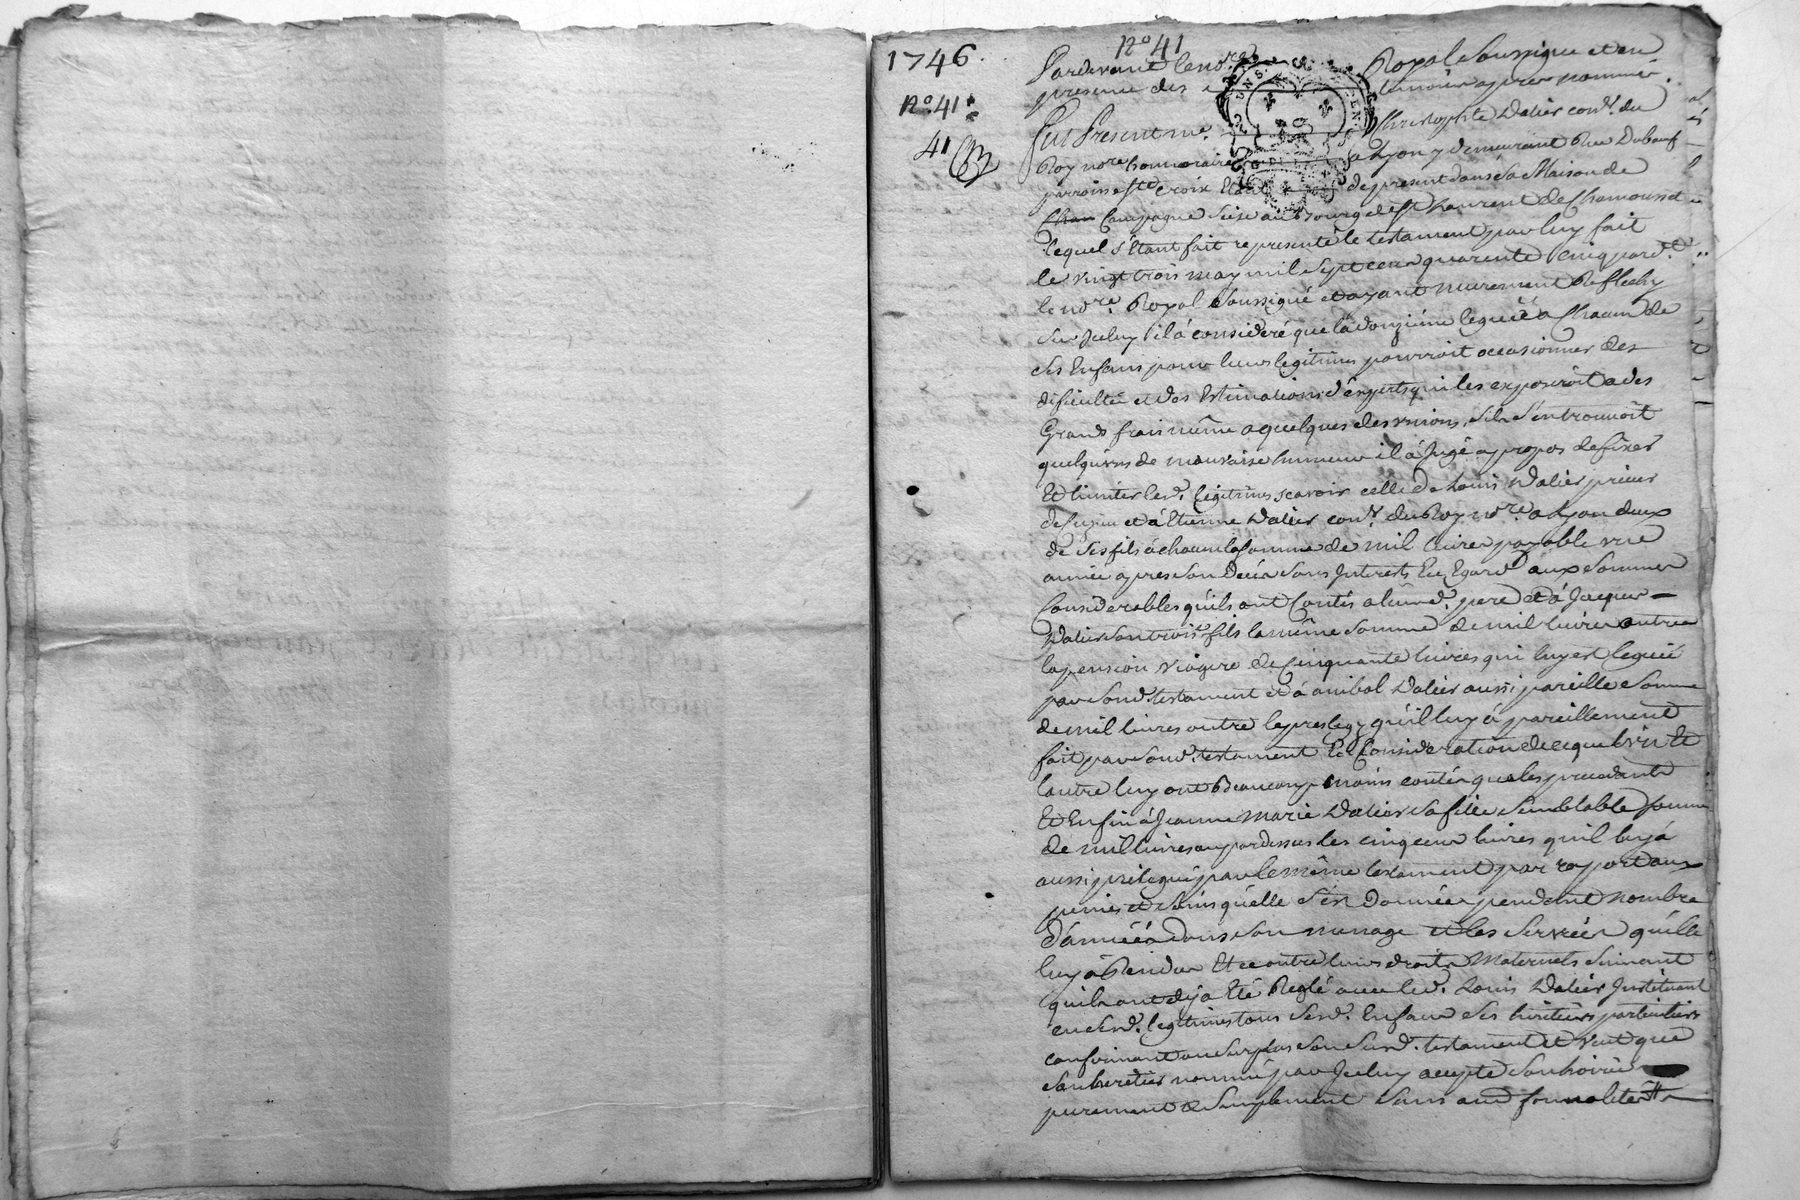 1746.
n.° 41
n.° 41
41
Pardevant le no.re Royal soussigné et en
presence des temoins apres nommés.
fut present m.e Christophle Dalier con.r du
Roy no.re honnoraire a Lyon y demeurant Rue Duboeuf
parroisse S.te Croix Etant de present dans sa Maison de
Campagne size au Bourg de S.t Laurent de Chamousset
lequel s'étant fait representé le testament par luy fait
le vingt trois may mil sept cent quarente cinq pard.t
le no.re Royal soussigné et ayant murement Reflechy
sur Iceluy il à consideré que la douzieme leguéé a Chacun de
ses Enfans pour leurs legitimes pourroit occasionner des
dificultés et des Estimations d'éxperts qui les exposeroit a des
Grands frais même a quelques desunions, s'il s'en trouvoit
quelqu'uns de mauvaise humeur il à Jugé apropos de fixer
Et limiter lesd. legitimes scavoir celle de Louis Dalier prieur
et à Etienne Dalier con.r du Roy no.re a Lyon deux
de ses fils à chacun la somme de mil livres payable une
année apres son Decéds sans Interests Eu Egard aux sommes
Considerables qu'ils ont Coutés a leurd. pere et à Jacques
Dalier son trois.e fils la même somme de mil livres outre
la pension viagere de Cinquante livres qui luy est leguéé
par sond. testament et à anibal Dalier aussi pareille somme
de mil livres outre le prelegs qu'il luy à pareillement
fait par sond. testament En Consideration de ce que l'un Et
l'autre luy ont Beaucoup moins coutés que les precedants
Et Enfin à Jeanne Marie Dalier sa fille semblable somme
de mil livres au par dessus les cinq cent livres qu'il luy à
aussi prelegué par le même testament par raport aux
peines et soins qu'elle s'est donnéé pendant nombre
d'annéés dans son menage et les services qu'elle
luy à Rendus Et ce outre leurs droits Maternels suivant
qu'ils ont deja Eté Reglé avec led. Louis Dalier Instituant
en sesd. legitimes tous sesd. Enfans ses heritiers particuliers
confirmant au surplus son susd. testament et veut que
son heretier nommé par Iceluy accepte son hoirie
purement & simplement sans aud formalités